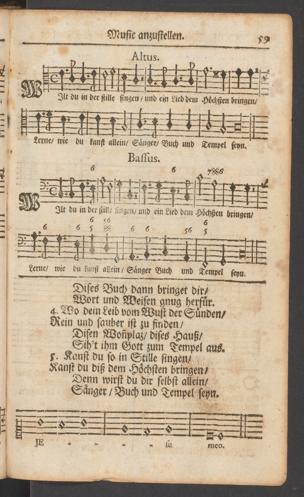 Music anzustellen. 59
Altus.
Wilt du in der stille singen/ und ein Lied dem Höchsten bringen/
Lerne/ wie du kanst allein/ Sänger/ Buch und Tempel seyn.
Bassus.
6 6 7866
Wilt du in der stille/ singen/ und ein Lied dem Höchsten bringen/
Lerne/ wie du kanst allein/ Sänger Buch und Tempel seyn.
Dises Buch dann bringet dir/
Wort und Weisen gnug herfür.
4. Wo dein Leib vom Wust der Sünden/
Rein und sauber ist zu finden/
Disen Wohnplaz/ dises Hauß/
Sih't ihm Gott zum Tempel aus.
5. Kanst du so in Stille singen/
Kanst du diß dem Höchsten bringen/
Denn wirst du dir selbst allein/
Sänger/ Buch und Tempel seyn.
JE - - - - su meo.